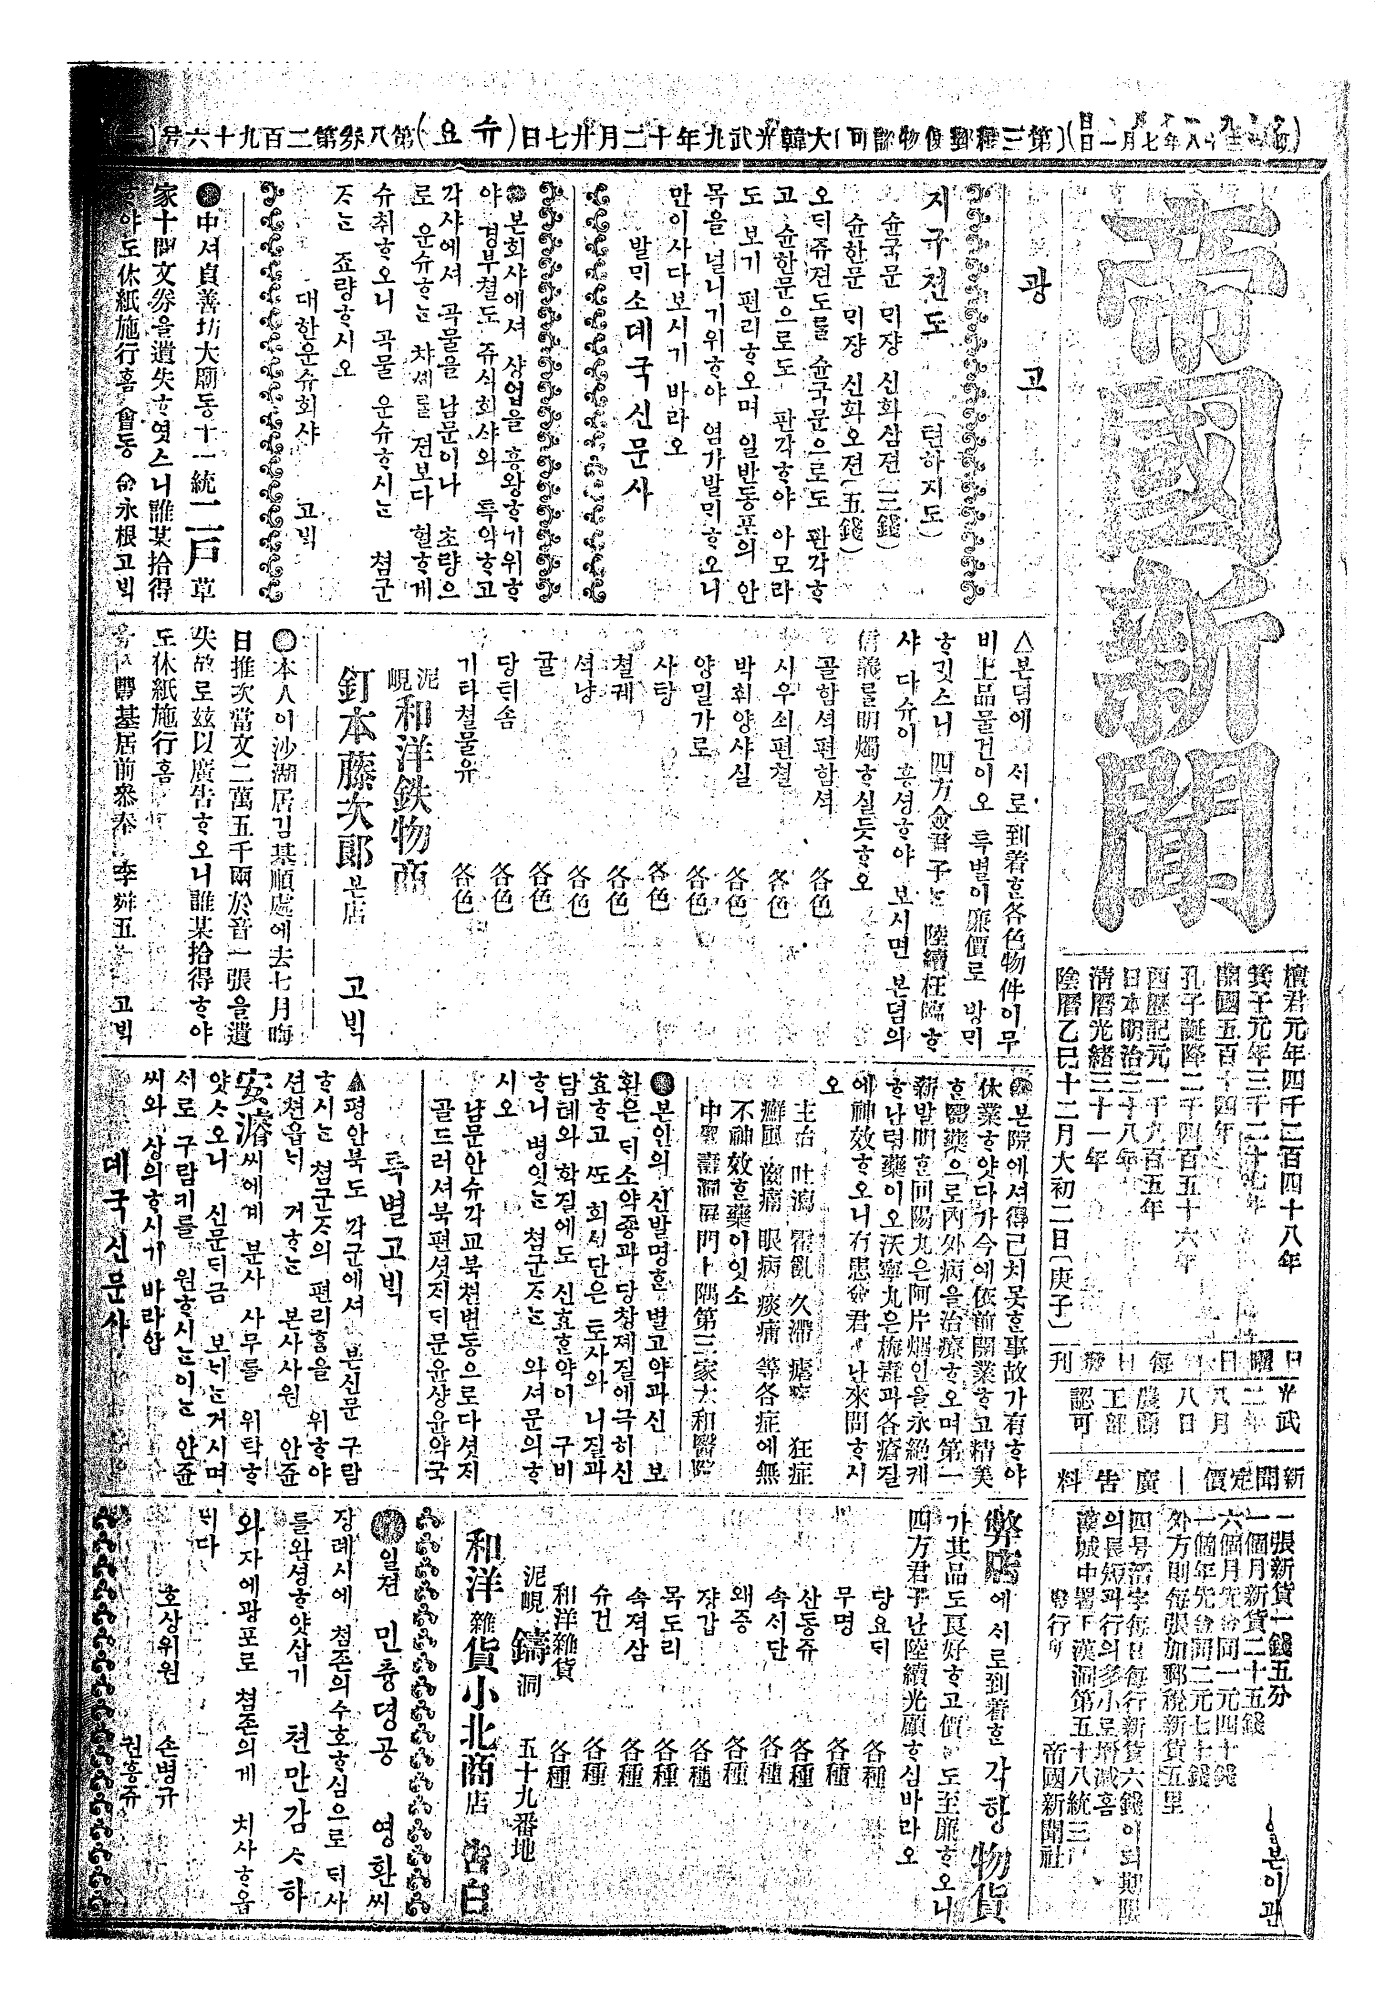 大韓光武九年十二月廿七日(슈요)第八券第二百九十六号
帝國新聞
檀君元年四千二百四十八年
箕子元年三千二十七年
開國五百十四年
孔子誕降二千四百五十六年
西歷記元一千九百五年
日本明治三十八年
淸曆光緖三十一年
陰曆乙巳十二月大初二日(庚子)
日曜日每日發刊
光武二年八月八日
農商工部認可
新聞定價 廣告料
一張新貨一錢五分
一個月新貨二十五錢
六個月先金同一元四十錢
一個年先金同二元七十錢
外方則每張加郵稅新貨五里
四号活字每日每行新貨六錢이되期限
의長短과行의多小로增減홈
漢城中署下漢洞第五十八統三戶
發行所 帝國新聞社
광고
지구젼도 (텬하지도)
슌국문 믜쟝 신화삼젼(三錢)
슌한문 믜쟝 신화오젼(五錢)
오대쥬젼도를 슌국문으로도 판각ᄒ
고 슌한문으로도 판각ᄒ야 아모라
도 보기 편리ᄒ오며 일반동포의 안
목을 널니기위ᄒ야 염가발ᄆᆡᄒ오니
만이사다보시기 바라오
발ᄆᆡ소 뎨국신문사
본회샤에셔 샹업을 흥왕ᄒ기위ᄒ
야 경부쳘도 쥬식회샤와 특약ᄒ고
각샤에셔 곡물을 남문이나 초량으
로 운슈ᄒᄂᆞᆫ 챠셰를 젼보다 헐ᄒ게
슈취ᄒ오니 곡물 운슈ᄒ시ᄂᆞᆫ 쳠군
ᄌᆞᄂᆞᆫ 죠량ᄒ시오
대한운슈회샤 고ᄇᆡᆨ
中셔貞善坊大廟동十一統二戶草
家十間文券을遺失ᄒ엿스니誰某拾得
ᄒ야도休紙施行홈 會동 金永根고ᄇᆡᆨ
△본뎜에 ᄉᆡ로到着ᄒᆞᆫ各色物件이무
비上品물건이오 특별이廉價로 방ᄆᆡ
ᄒ깃스니 四方僉君子ᄂᆞᆫ 陸續枉臨ᄒ
샤 다슈이 흥셩ᄒ야 보시면 본뎜의
信義를明燭ᄒ실듯ᄒ오
골함셕편함셕 各色
시우쇠편쳘 各色
박휘양사실 各色
양밀가로 各色
사탕 各色
쳘궤 各色
셕냥 各色
귤 各色
당ᄐᆡ솜 各色
기타쳘물유 各色
泥峴 和洋鉄物商
釘本藤次郞 본店 고ᄇᆡᆨ
○本人이沙湖居김基順處에去七月晦
日推次當文二萬五千兩於音一張을遺
失故로玆以廣告ᄒ오니誰某拾得ᄒ야
도休紙施行홈
豐基居前參奉 李舜五 고ᄇᆡᆨ
본院에셔得已치못ᄒᆞᆫ事故가有ᄒ야
休業ᄒ얏다가今에依前開業ᄒ고精美
ᄒᆞᆫ醫藥으로內外病을治療ᄒ오며第一
新發明ᄒᆞᆫ回陽丸은阿片烟인을永絕케
ᄒ난령藥이오沃寧丸은梅毒과各瘡질
에神效ᄒ오니有患僉君子난來問ᄒ시
오
主治 吐瀉 霍亂 久滯 瘧疾 狂症
癬風 齒痛 眼病 痰痛 等各症에無
不神效ᄒᆞᆫ藥이잇소
中署壽洞屛門卜隅第三家大和醫院
본인의 신발명ᄒᆞᆫ 별고약과신 보
환은 ᄃᆡ소약죵과 당창졔질에극히신
효ᄒ고 ᄯᅩ 회ᄉᆡᆼ단은 토사와 니질과
담톄와 학질에도 신효ᄒᆞᆫ약이 구비
ᄒ니 병잇ᄂᆞᆫ 쳠군ᄌᆞᄂᆞᆫ 와셔문의ᄒ
시오
남문안슈각교북쳔변동으로다셧ᄌᆡ
골드러셔북편셧ᄌᆡᄃᆡ문윤샹윤약국
특별고ᄇᆡᆨ
▲평안북도 각군에셔 본신문 구람
ᄒ시ᄂᆞᆫ 쳠군ᄌᆞ의 편리홈을 위ᄒ야
션쳔읍ᄂᆡ 거ᄒᄂᆞᆫ 본사사원 안쥰
安濬씨에게 분사 사무를 위탁ᄒ
얏ᄉᆞ오니 신문ᄃᆡ금 보ᄂᆡᄂᆞᆫ거시며
ᄉᆡ로 구람키를 원ᄒ시ᄂᆞᆫ이ᄂᆞᆫ 안쥰
씨와 상의ᄒ시기 바라압
뎨국신문사
弊店에ᄉᆡ로到着ᄒᆞᆫ 각항 物貨
가其品도良好ᄒ고價도至廉ᄒ오니
四方君子난陸續光顧ᄒ심바라오
당요ᄃᆡ 各種
무명 各種
산동쥬 各種
속시단 各種
왜증 各種
쟝갑 各種
목도리 各種
속젹삼 各種
슈건 各種
和洋雜貨 各種
泥峴 鑄洞 五十九番地
和洋雜貨小北商店 告白
일젼 민츙뎡공 영환씨
장례시에 쳠존의수호ᄒ심으로 ᄃᆡ사
를완셩ᄒ얏삽기 쳔만감ᄉᆞ하
와자에광포로 쳠존의게 치사ᄒ옵
ᄂᆡ다
호상위원 손병규
권흥쥬